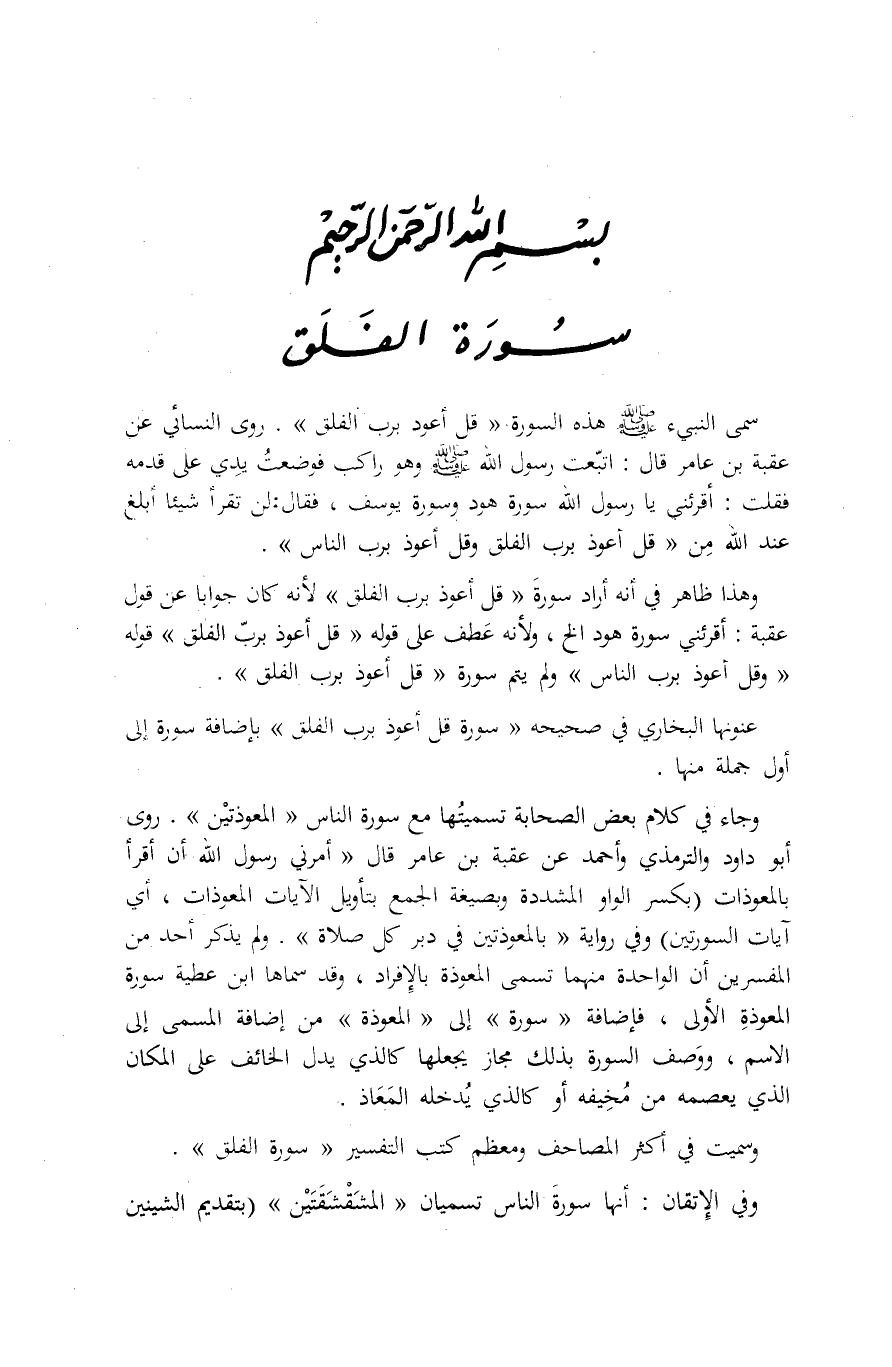 بِسْمِ اللهِ الرَّحْمَنِ الرَّحِيْمِ
سُورَة الفَلَق
سمى النبيء ﷺ هذه السورة « قل أعوذ برب الفلق » . روى النسائي عن
عقبة بن عامر قال : اتبّعت رسول الله ﷺ وهو راكب فوضعتُ يدِي على قدمه
فقلت : أقرئني يا رسول الله سورة هود وسورة يوسف ، فقال:لن تقرأ شيئا أبلغ
عند الله مِن « قل أعوذ برب الفلق وقل أعوذ برب الناس » .
وهذا ظاهر في أنه أراد سورةَ « قل أعوذ برب الفلق » لأنه كان جوابا عن قول
عقبة : أقرئني سورة هود الخ ، ولأنه عَطف على قوله « قل أعوذ بربّ الفلق » قوله
« وقل أعوذ برب الناس » ولم يتم سورة « قل أعوذ برب الفلق » .
عنونها البخاري في صحيحه « سورة قل أعوذ برب الفلق » بإضافة سورة إلى
أول جملة منها .
وجاء في كلام بعض الصحابة تسميتُها مع سورة الناس « المعوذتيْن » . روى
أبو داود والترمذي وأحمد عن عقبة بن عامر قال « أمرني رسول الله أن أقرأ
بالمعوذات (بكسر الواو المشددة وبصيغة الجمع بتأويل الآيات المعوذات ، أي
آيات السورتين) وفي رواية « بالمعوذتين في دبر كل صلاة » . ولم يذكر أحد من
المفسرين أن الواحدة منهما تسمى المعوذة بالإِفراد ، وقد سماها ابن عطية سورة
المعوذةِ الأولى ، فإضافة « سورة » إلى « المعوذة » من إضافة المسمى إلى
الاسم ، ووَصف السورة بذلك مجاز يجعلها كالذي يدل الخائف على المكان
الذي يعصمه من مُخِيفه أو كالذي يُدخله المَعَاذ .
وسميت في أكثر المصاحف ومعظم كتب التفسير « سورة الفلق » .
وفي الإِتقان : أنها سورةَ الناس تسميان « المشَقْشَقَتَيْن » (بتقديم الشينين